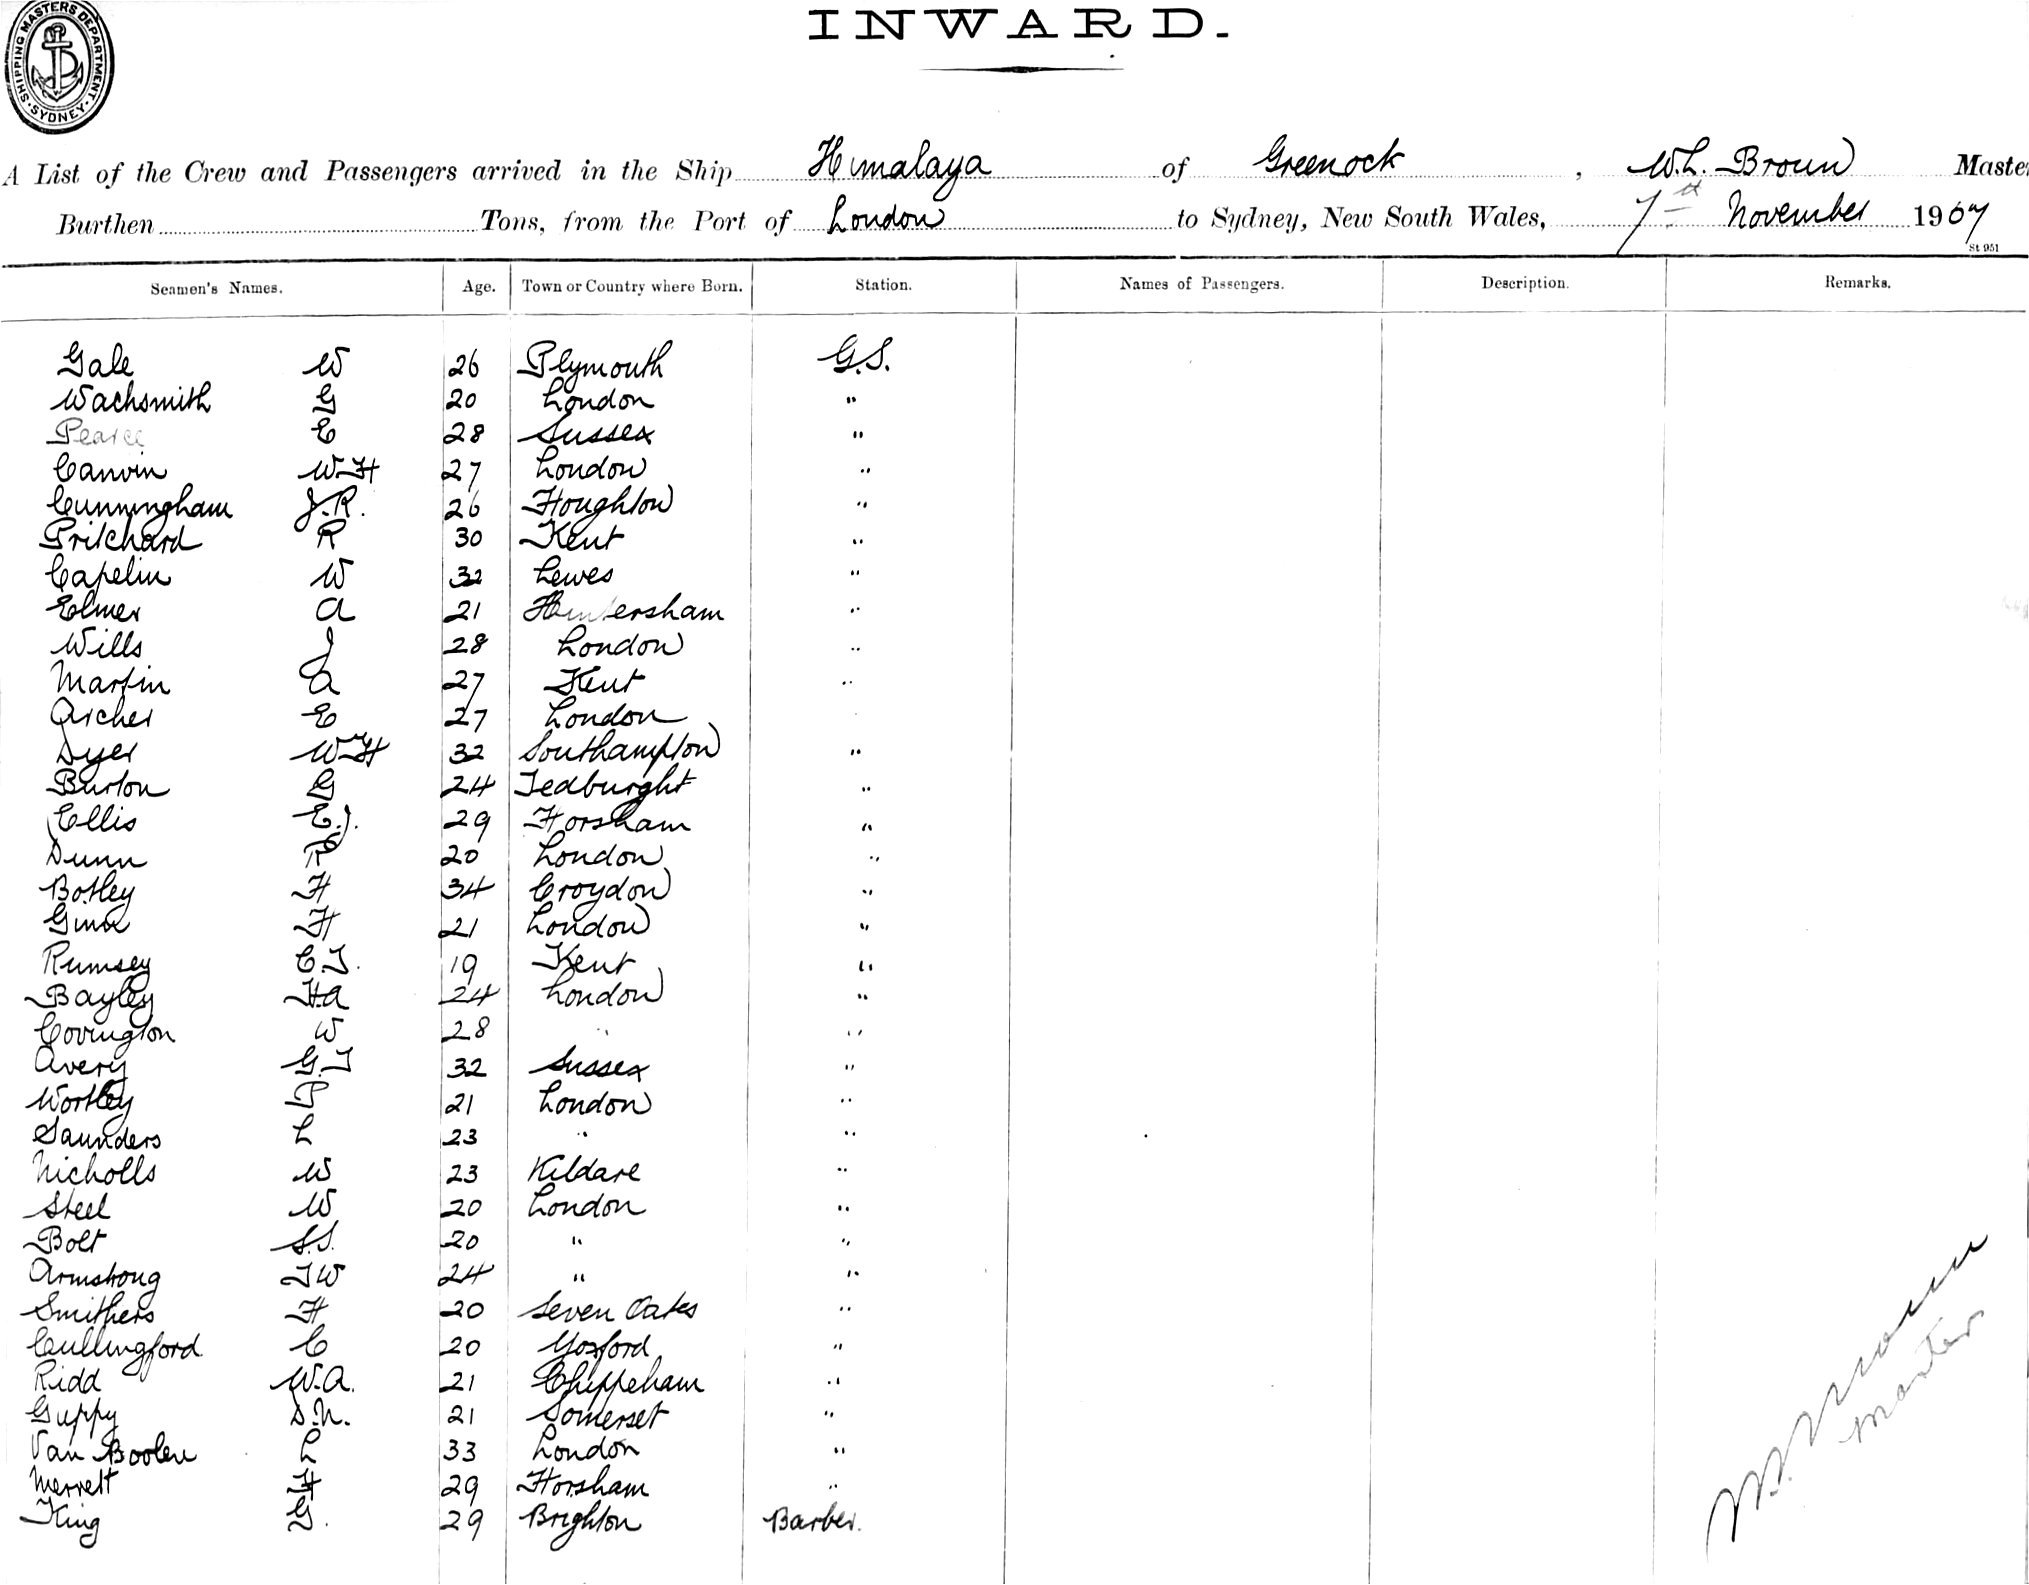 SHIPPING MASTERS DEPARTMENT · SYDNEY ·
INWARD.
A List of the Crew and Passengers arrived in the Ship Himalaya of Greenock, W.L. Broun Master
Burthen Tons, from the Port of London to Sydney, New South Wales, 7th November 1907
St 951
Seamen's Names. Age. Town or Country where Born. Station. Names of Passengers. Description. Remarks.
Gale W 26 Plymouth G.S.
Wachsmith G 20 London "
Pearce E 28 Sussex "
Canvin W H 27 London "
Cunningham J.R. 26 Houghton "
Pritchard R 30 Kent "
Capelin W 32 Lewes "
Elmer A 21 Hintersham "
Wills J 28 London "
Martin A 27 Kent "
Archer E 27 London
Dyer W H 32 Southampton "
Burton G 24 Tedburght "
Ellis E.J. 29 Horsham "
Dunn R 20 London "
Botley H 34 Croydon "
Ginn H 21 London "
Rumsey C.T. 19 Kent "
Bayley H A 24 London "
Covington W 28 " "
Avery G.T 32 Sussex "
Wortley P 21 London "
Saunders L 23 " "
Nicholls W 23 Kildare "
Steel W 20 London "
Bolt S.S. 20 " "
Armstrong T W 24 " "
Smithers H 20 Seven Oaks "
Cullingford C 20 Yoxford "
Ridd W.A. 21 Chippeham "
Guppy D.N. 21 Somerset "
Van Boolen L 33 London "
Merrett H 29 Horsham "
King G. 29 Brighton Barber.
W.L. Broun
Master